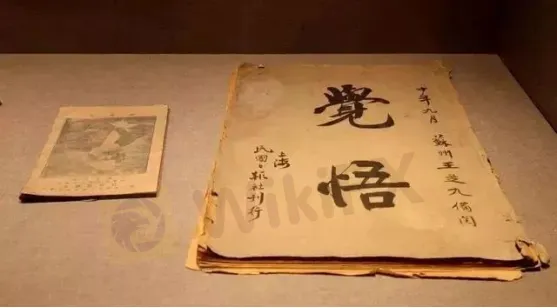 十年九月 蘇州王莲九備閱
覺悟
上海
民國日報社刊行
WikiFX